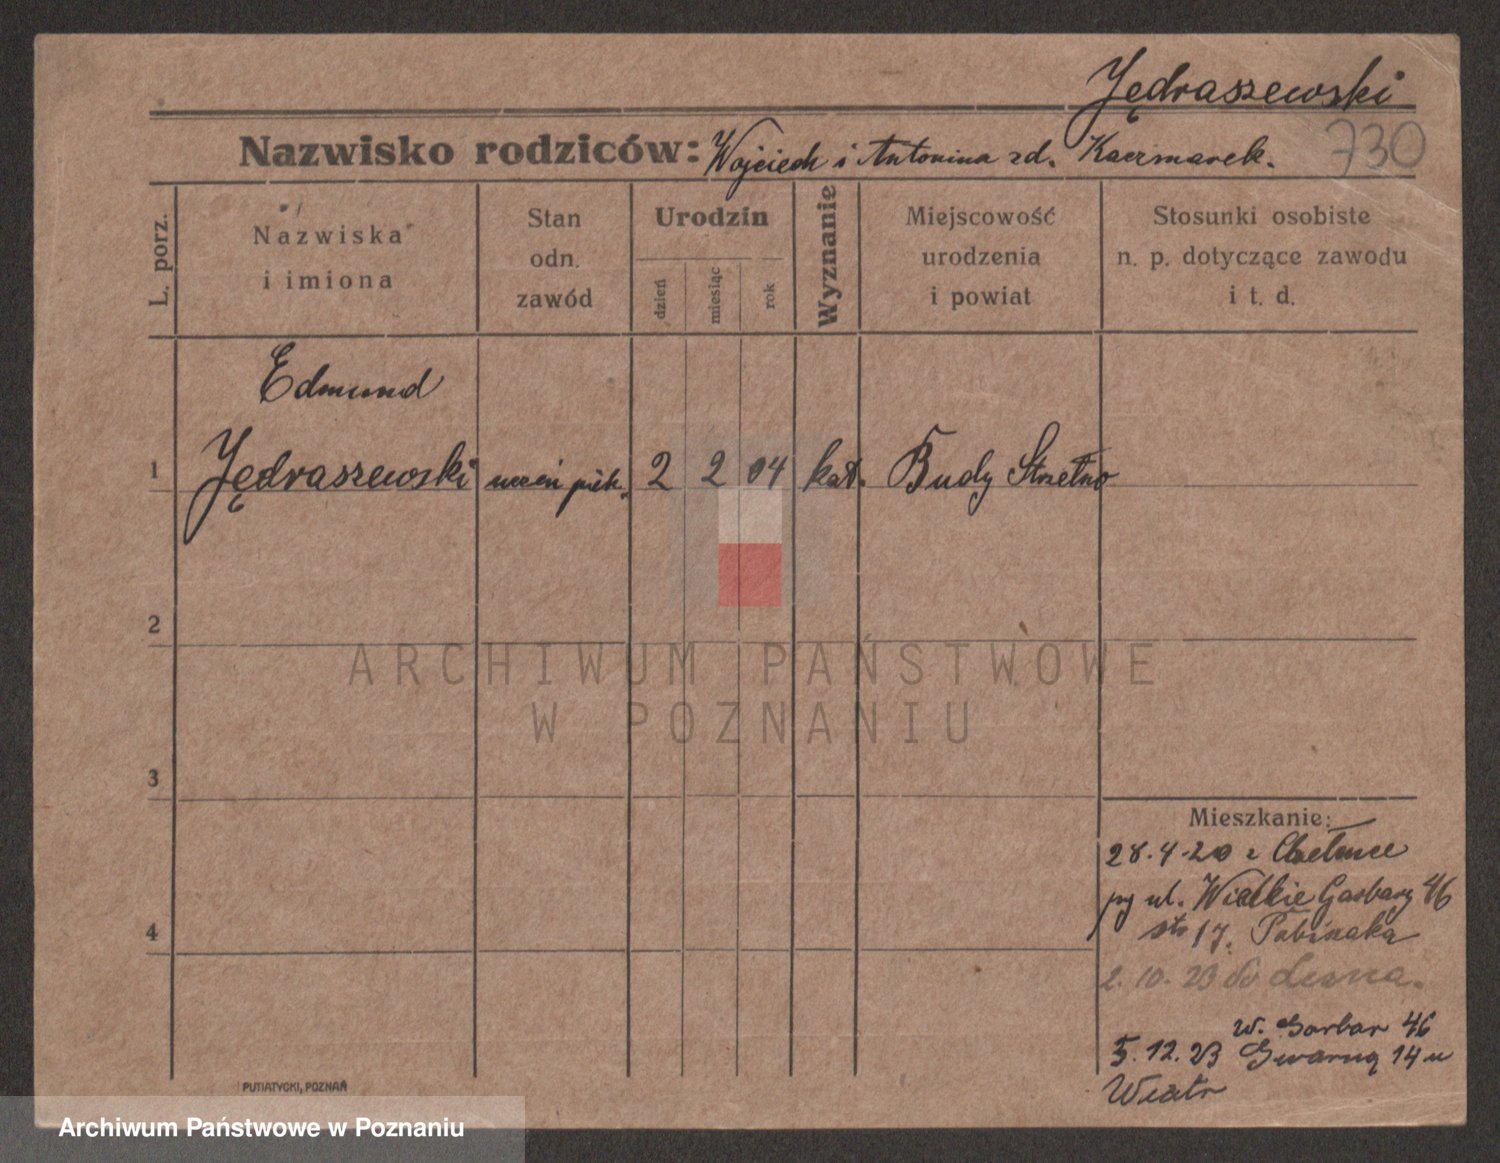 Jędraszewski
Nazwisko rodziców: Wojciech i Antonina zd. Kaczmarek.
730
L. porz.
Nazwiska
i imiona
Stan
odn.
zawód
Urodzin
dzień
miesiąc
rok
Wyznanie
Miejscowość
urodzenia
i powiat
Stosunki osobiste
n. p. dotyczące zawodu
i t. d.
Edmund
1 Jędraszewski uczeń piek. 2 2 04 kat. Budy Strzelno
2
ARCHIWUM PAŃSTWOWE
W POZNANIU
3
Mieszkanie:
28.4.20 z Chełmce
ul. Wielkie Garbary 46
17.
4
2.10.23 do
w. Garbar 46
5.12.23 Gwarną 14 u
Wiatr
PUTIATYCKI, POZNAŃ
Archiwum Państwowe w Poznaniu